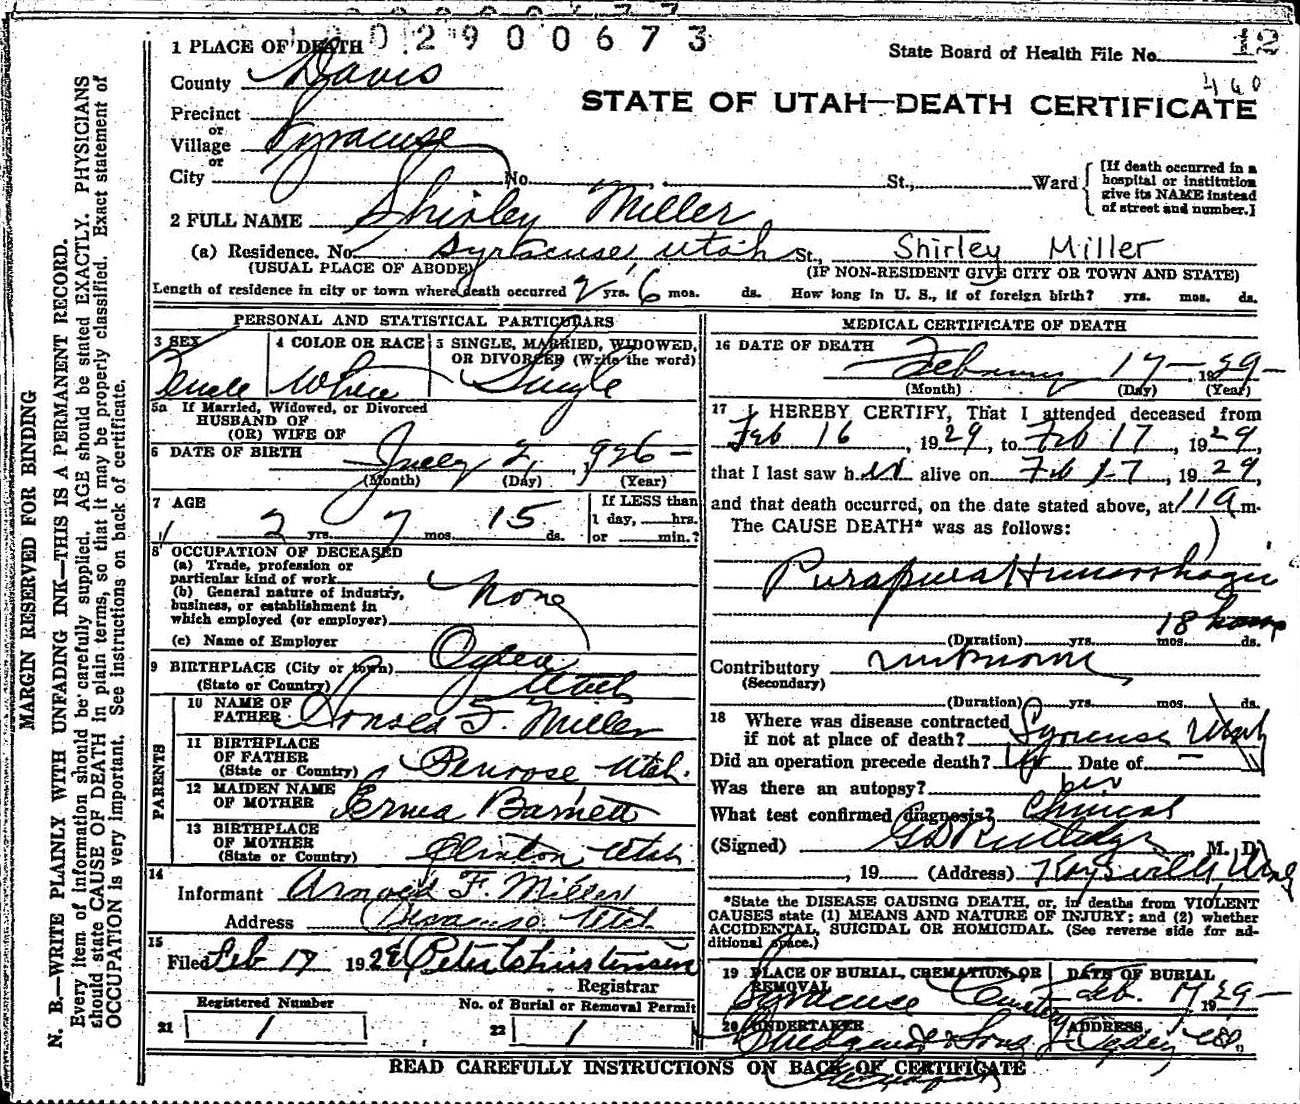 02900673
1 PLACE OF DEATH
State Board of Health File No.
460
County Davis
STATE OF UTAH—DEATH CERTIFICATE
Precinct
or
Village Syracuse
or
City No. St., Ward
[If death occurred in a hospital or institution give its NAME instead of street and number.]
2 FULL NAME Shirley Miller
(a) Residence. No. Syracuse, Utah St., Shirley Miller
(USUAL PLACE OF ABODE) (IF NON-RESIDENT GIVE CITY OR TOWN AND STATE)
Length of residence in city or town where death occurred 2 yrs. 6 mos. ds. How long in U. S., if of foreign birth? yrs. mos. ds.
PERSONAL AND STATISTICAL PARTICULARS
3 SEX 4 COLOR OR RACE 5 SINGLE, MARRIED, WIDOWED, OR DIVORCED (Write the word)
Female White Single
5a If Married, Widowed, or Divorced
HUSBAND OF
(OR) WIFE OF
6 DATE OF BIRTH July 2, 1926
(Month) (Day) (Year)
7 AGE
2 yrs. 7 mos. 15 ds.
If LESS than
1 day, hrs.
or min.?
8 OCCUPATION OF DECEASED
(a) Trade, profession or
particular kind of work
(b) General nature of industry,
business, or establishment in
which employed (or employer)
None
(c) Name of Employer
9 BIRTHPLACE (City or town) Ogden
(State or Country) Utah
PARENTS
10 NAME OF FATHER F. Miller
11 BIRTHPLACE OF FATHER
(State or Country) Penrose Utah.
12 MAIDEN NAME OF MOTHER Erma Barnett
13 BIRTHPLACE OF MOTHER
(State or Country) Clinton Utah
14
Informant Arnold F. Miller
Address Syracuse Utah
15
Filed Feb 17 1929 Peter Christensen
Registrar
Registered Number No. of Burial or Removal Permit
21 1 22 1
MEDICAL CERTIFICATE OF DEATH
16 DATE OF DEATH
February 17—1929—
(Month) (Day) (Year)
17 I HEREBY CERTIFY, That I attended deceased from
Feb 16, 1929, to Feb 17, 1929,
that I last saw her alive on Feb 17, 1929,
and that death occurred, on the date stated above, at 11 a m.
The CAUSE DEATH* was as follows:
Purapura Hemorrhagic
18 hours
(Duration) yrs. mos. ds.
Contributory unknown
(Secondary)
(Duration) yrs. mos. ds.
18 Where was disease contracted
if not at place of death? Syracuse Utah
Did an operation precede death? Date of —
Was there an autopsy?
What test confirmed diagnosis? Clinical
(Signed) M. D.
, 19 (Address) Kaysville, Utah
*State the DISEASE CAUSING DEATH, or, in deaths from VIOLENT
CAUSES state (1) MEANS AND NATURE OF INJURY; and (2) whether
ACCIDENTAL, SUICIDAL OR HOMICIDAL. (See reverse side for ad-
ditional space.)
19 PLACE OF BURIAL, CREMATION, OR REMOVAL DATE OF BURIAL
Syracuse Cemetery Feb. 19 1929—
20 UNDERTAKER ADDRESS
& Sons Ogden
READ CAREFULLY INSTRUCTIONS ON BACK OF CERTIFICATE
MARGIN RESERVED FOR BINDING
N. B.—WRITE PLAINLY WITH UNFADING INK—THIS IS A PERMANENT RECORD.
Every item of information should be carefully supplied. AGE should be stated EXACTLY. PHYSICIANS
should state CAUSE OF DEATH in plain terms, so that it may be properly classified. Exact statement of
OCCUPATION is very important. See instructions on back of certificate.